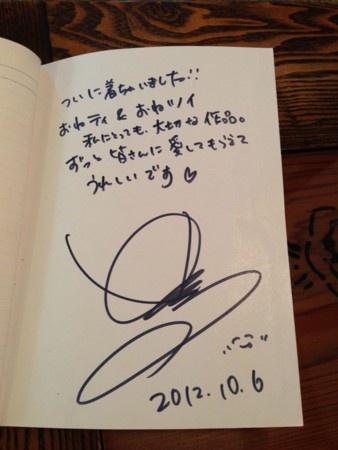 ついに着ちゃいました!!
おねティ & おねツイ
私にとっても、大切な作品。
ずっと皆さんに愛してもらえて
うれしいです♡
2012.10.6